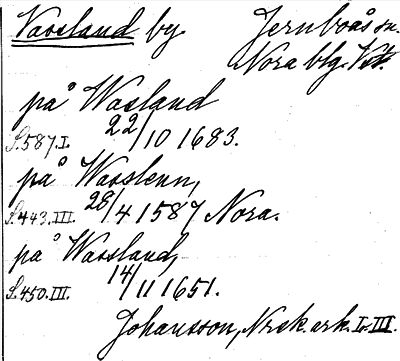 Vassland by. Jernboås sn.
Nora blg. Vstm.
på Wasland
S. 587. I. 22/10 1683.
på Wasslenn,
S. 443. III. 28/4 1587 Nora.
på Wassland,
S. 450. III. 14/11 1651.
Johansson, Nrsk. ark. I-III.